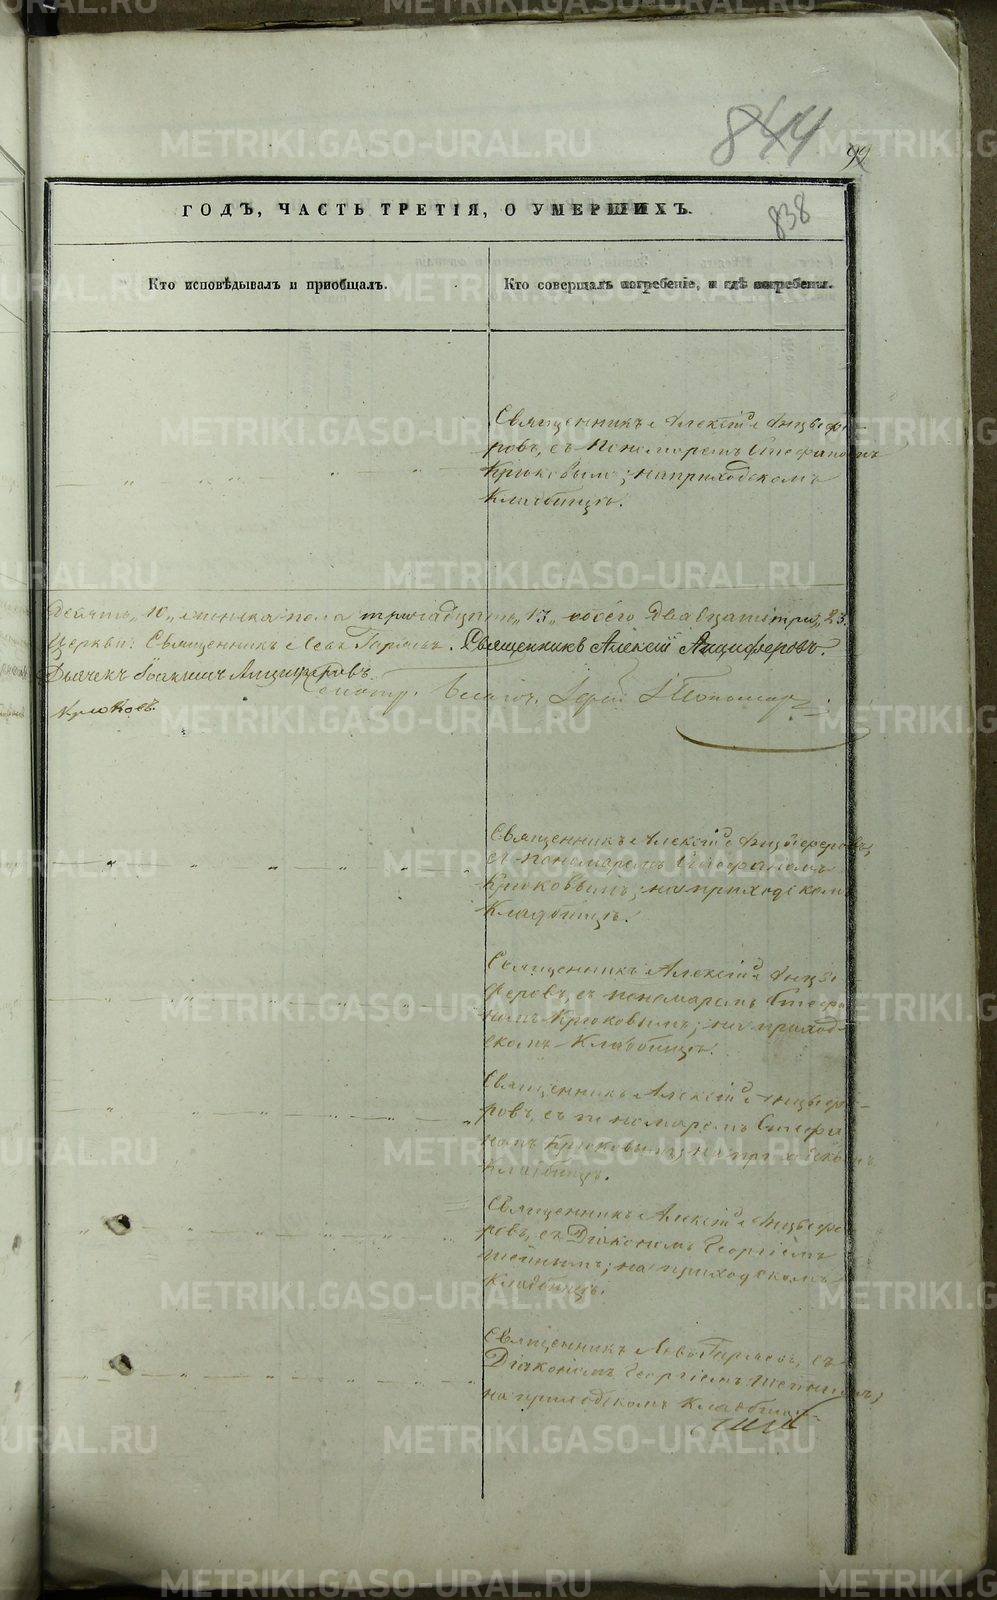 844
92
ГОДЪ, ЧАСТЬ ТРЕТІЯ, О УМЕРШИХЪ.
838
Кто исповѣдывалъ и пріобщалъ.
Кто совершалъ погребеніе, и гдѣ погребены.
Священникъ Алексій Анцыфе-
ровъ, съ Пономаремъ Стефаномъ
Крюковымъ; на приходскомъ
Кладбищѣ.
десять, 10, женска пола тринадцать, 13, обоего двадцать три, 23.
Церкви: Священникъ Левъ Гаряевъ. Священникъ Алексій Анциферовъ.
Дьячекъ Іоаннъ Анциферовъ
Крюковъ.
Священникъ Алексій Анцыферовъ,
съ пономаремъ Стефаномъ
Крюковымъ; на приходскомъ
Кладбищѣ.
Священникъ Алексій Анцы-
феровъ, съ пономаремъ Стефа-
номъ Крюковымъ; на приход-
скомъ Кладбищѣ.
Священникъ Алексій Анцыфе-
ровъ, съ пономаремъ Стефа-
номъ Крюковымъ; на приходскомъ
Кладбищѣ.
Священникъ Алексій Анцыфе-
ровъ, съ Діакономъ Георгіемъ
на приходскомъ
Кладбищѣ.
Священникъ Левъ Гаряевъ, съ
Діакономъ Георгіемъ
на приходскомъ Кладбищѣ.
METRIKI.GASO-URAL.RU